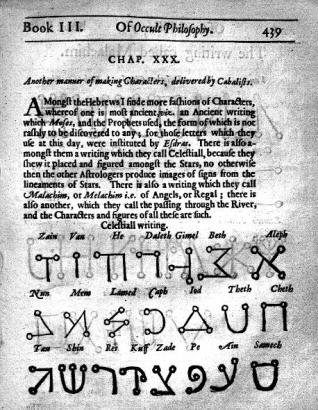 Book III. Of Occult Philosophy. 439
CHAP. XXX.
Another manner of making Characters, delivered by Cabalists.
AMongst the Hebrews I finde more fashions of Characters,
whereof one is most ancient, viz. an Ancient writing
which Moses, and the Prophets used, the form of which is not
rashly to be discovered to any; for those letters which they
use at this day, were instituted by Esdras. There is also a-
mongst them a writing which they call Celestiall, because they
shew it placed and figured amongst the Stars, no otherwise
then the other Astrologers produce images of signs from the
lineaments of Stars. There is also a writing which they call
Malachim, or Melachim i.e. of Angels, or Regal; there is
also another, which they call the passing through the River,
and the Characters and figures of all these are such.
Celestiall writing.
Zain Vau He Daleth Gimel Beth Aleph
Nun Mem Lamed Caph Iod Theth Cheth
Tau Shin Res Kuff Zade Pe Ain Samech